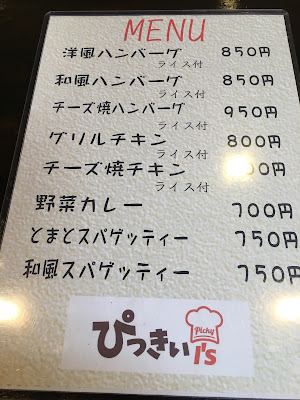 MENU
洋風ハンバーグ 850円
ライス付
和風ハンバーグ 850円
ライス付
チーズ焼ハンバーグ 950円
ライス付
グリルチキン 800円
ライス付
チーズ焼チキン 00円
ライス付
野菜カレー 700円
とまとスパゲッティー 750円
和風スパゲッティー 750円
ぴっきぃ Picky I's